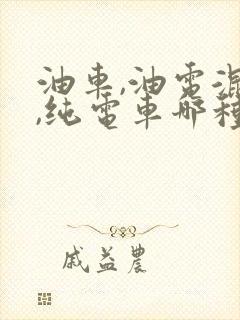 油車,油電混
,純電車哪種
戚益農